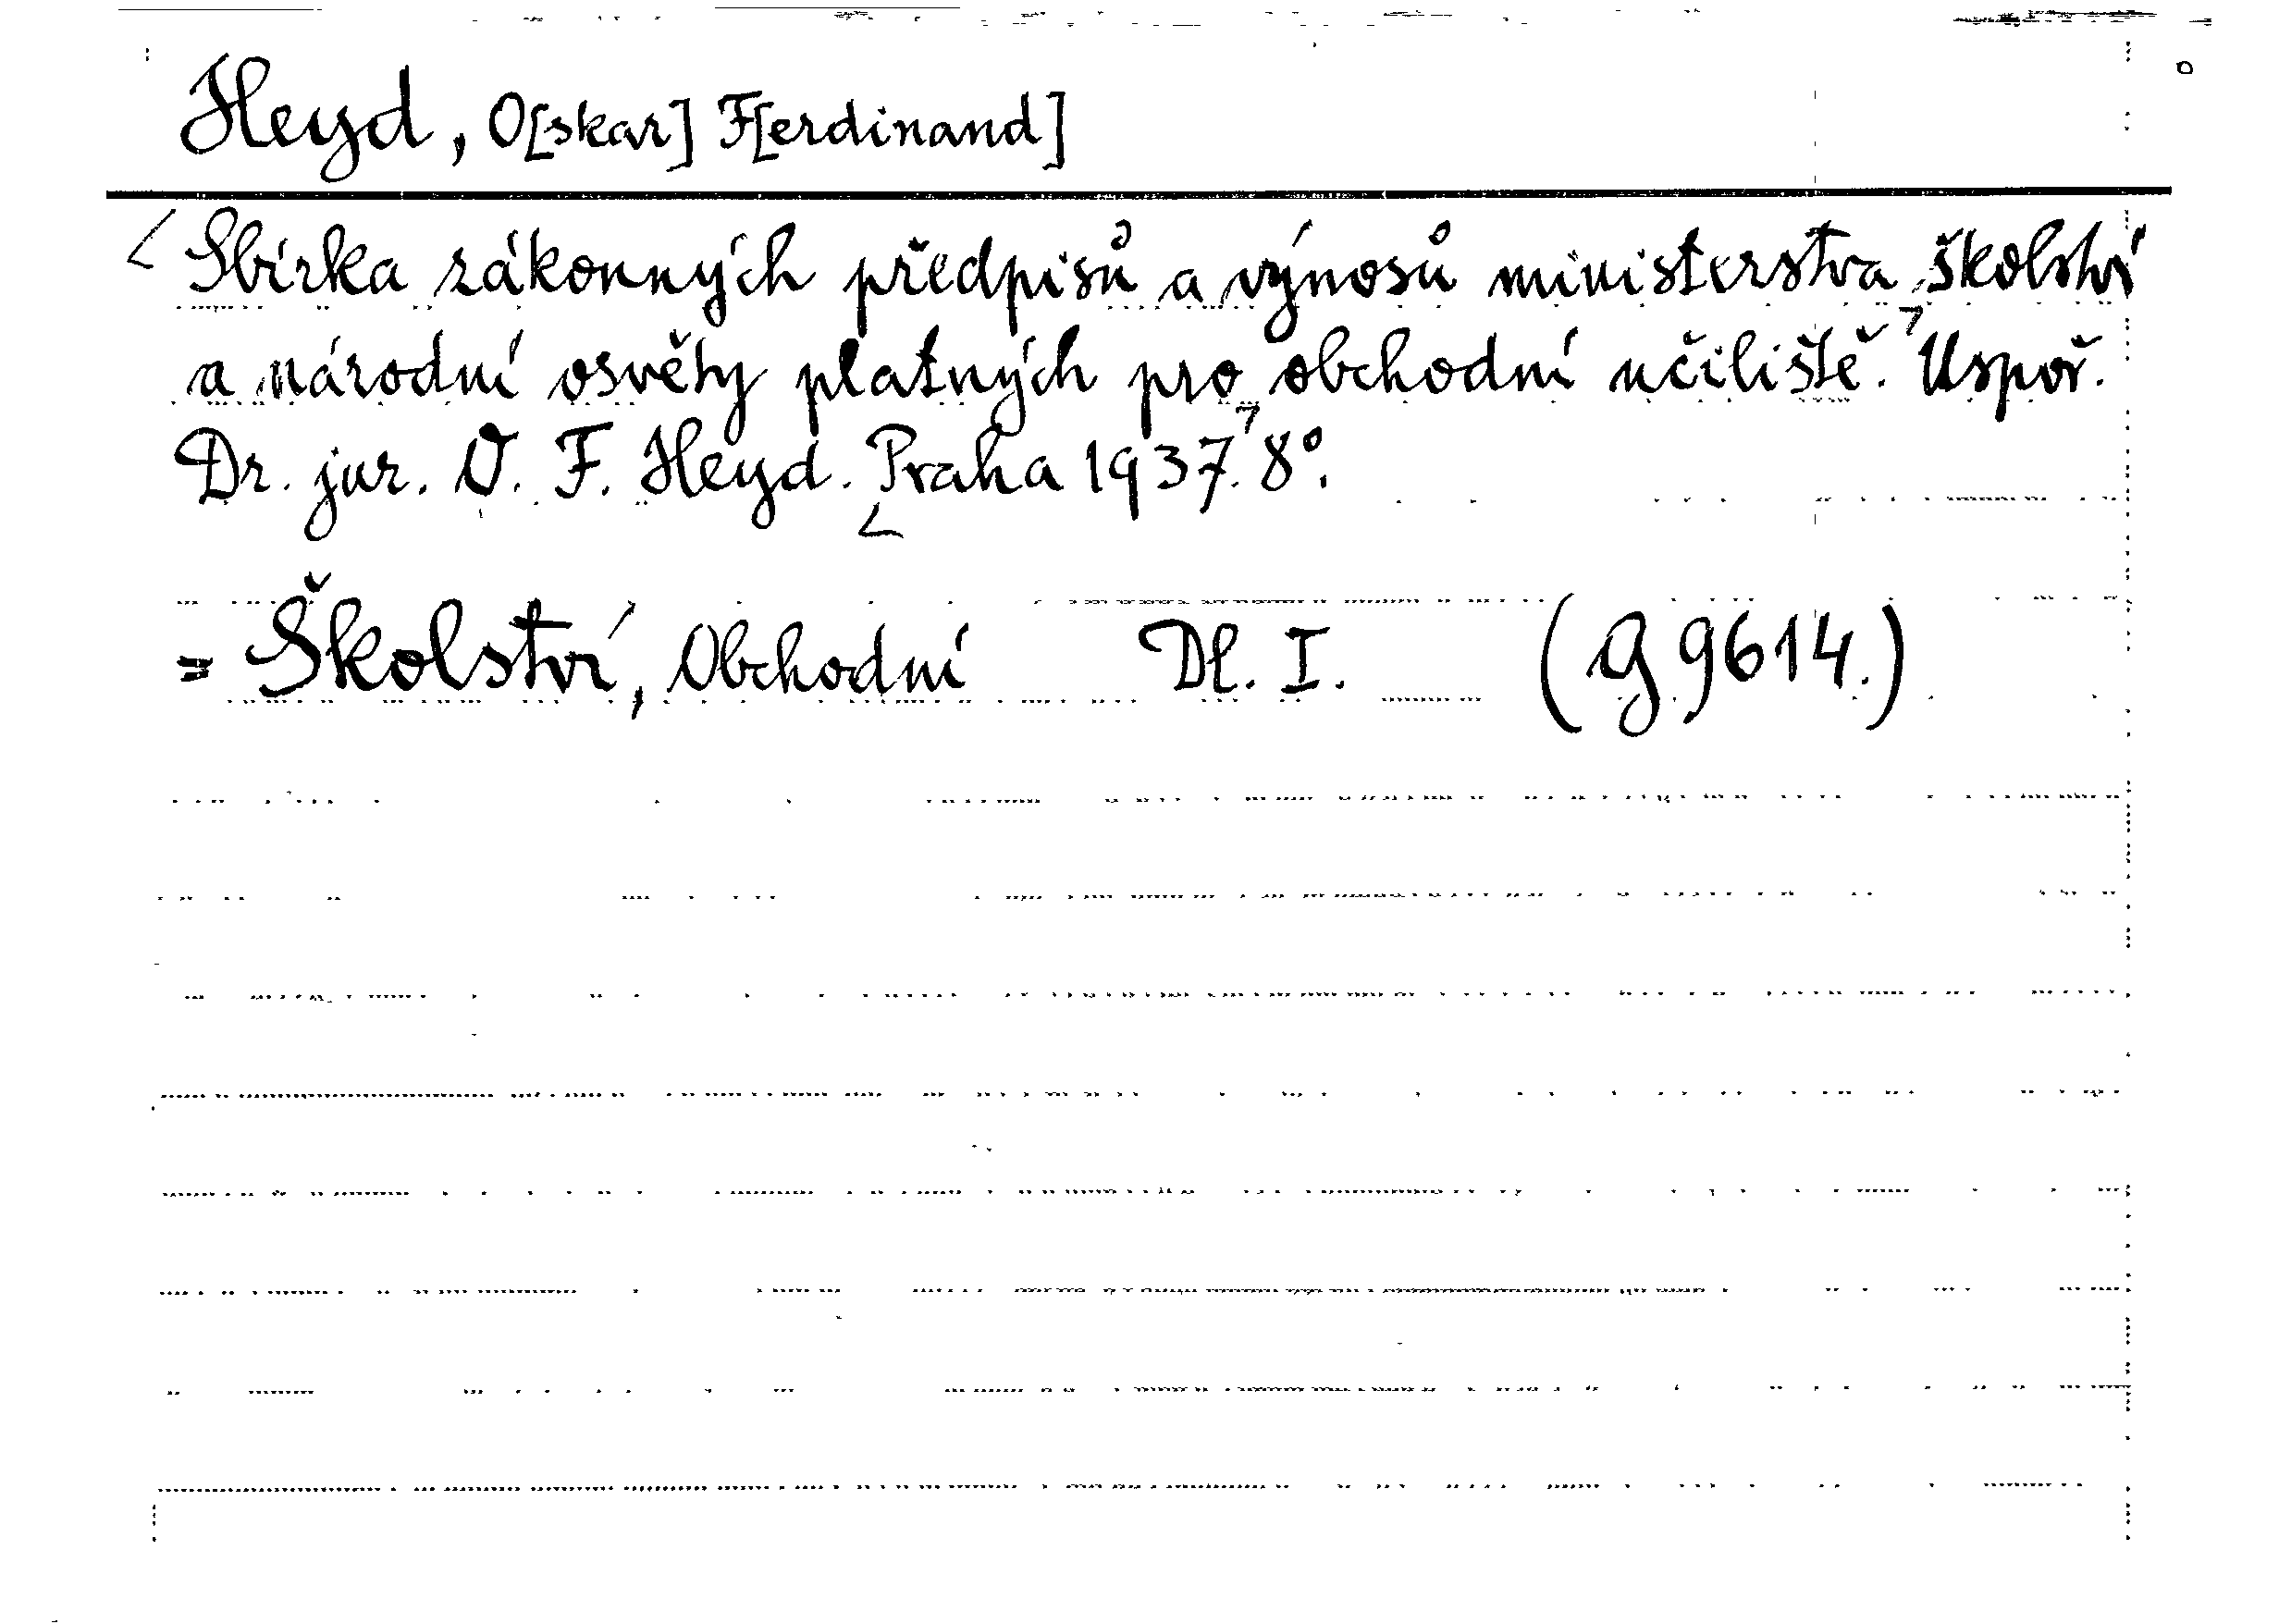 Heyd, O[skar] F[erdinand]
Sbírka zákonných předpisů a výnosů ministerstva školství
a národní osvěty platných pro obchodní učiliště. Uspoř.
Dr. jur. O. F. Heyd. Praha 1937. 8°.
= Školství, Obchodní Dl. I. (G 9614.)